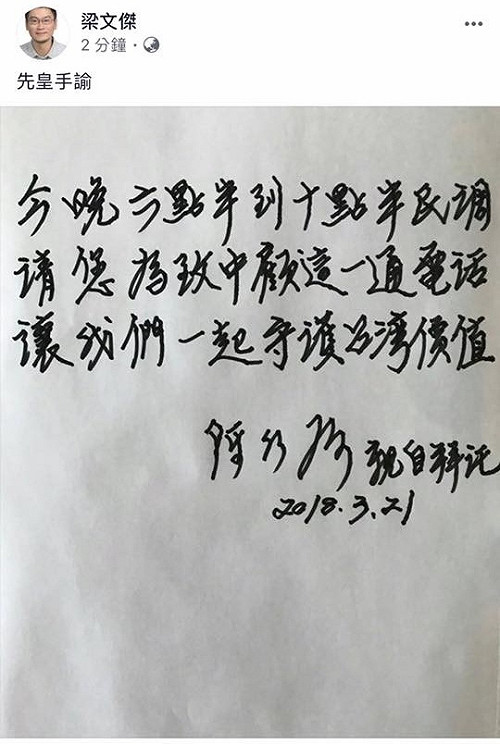 梁文傑
2 分鐘 ·
先皇手諭
今晚六點半到十點半民调
请您為致中顧這一通電话
讓我們一起守護台湾價值
陳水扁 親自拜託
2018.3.21